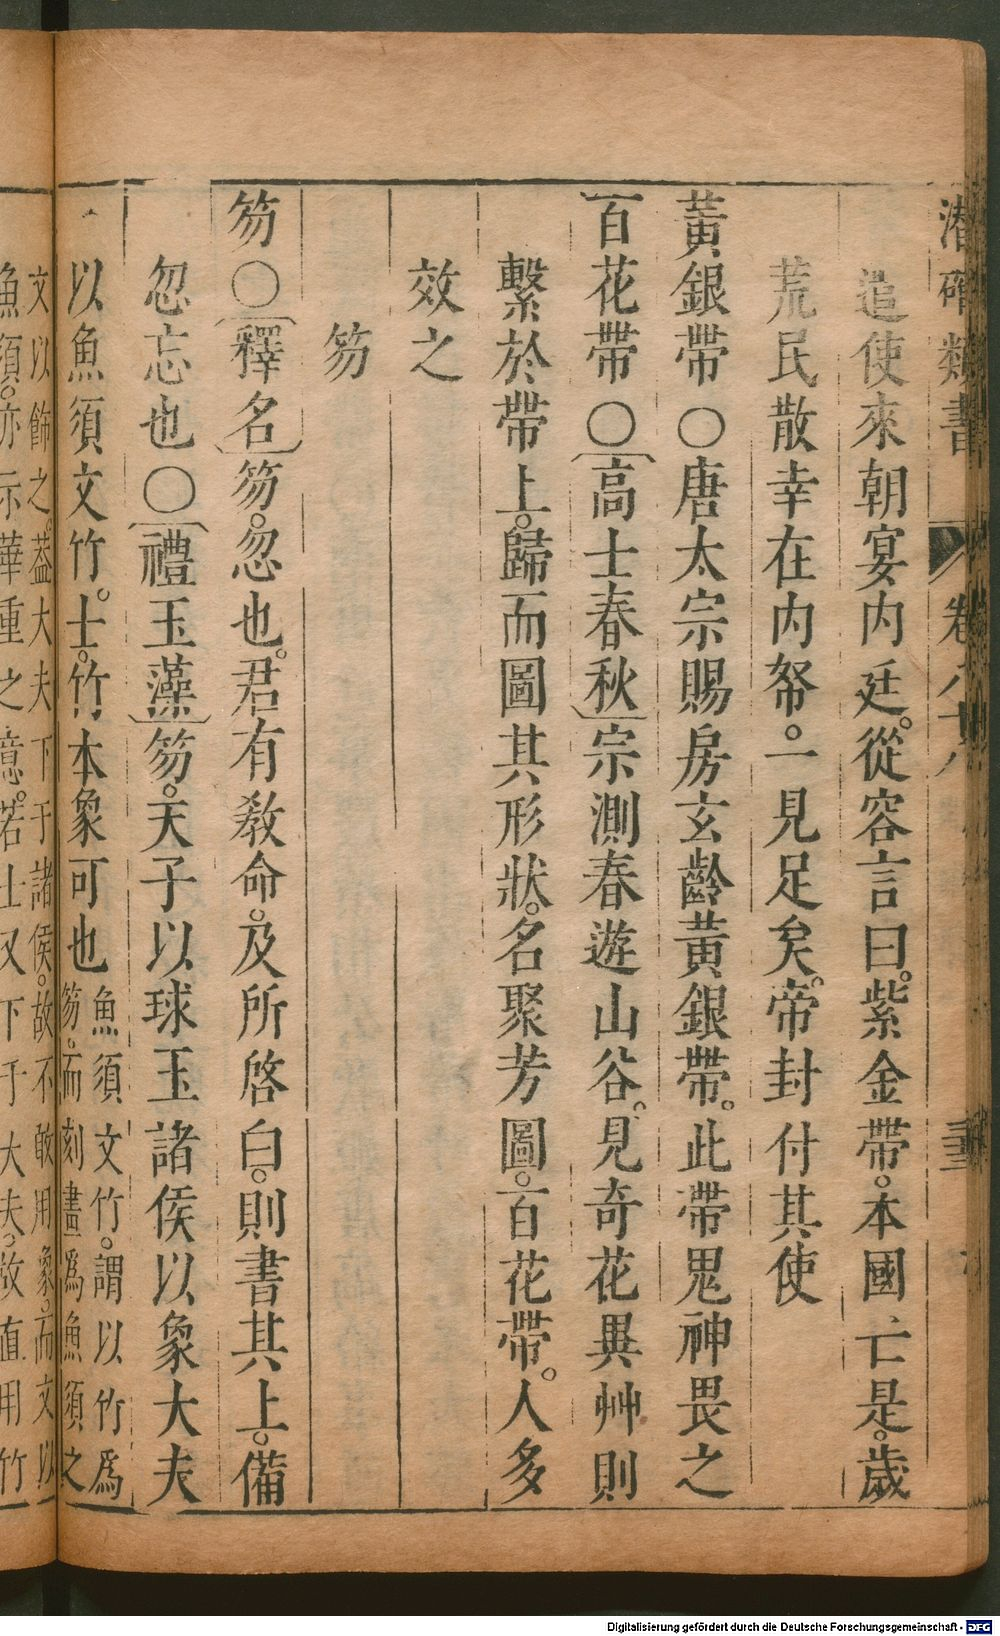 潛確類書 卷八十八
遣使來朝宴内廷。從容言曰。紫金帶。本國亡是。歲
荒民散幸在内帑。一見足矣。帝封付其使
黃銀帶〇唐太宗賜房玄齡黃銀帶。此帶鬼神畏之
百花帶〇高士春秋宗測春遊山谷。見奇花異艸則
繫於帶上。歸而圖其形狀。名聚芳圖。百花帶。人多
效之
笏
笏〇釋名笏。忽也。君有敎命。及所啓白。則書其上。備
忽忘也〇禮玉藻笏。天子以球玉諸侯以象大夫
以魚須文竹。士。竹本象可也
魚須文竹。謂以竹爲
笏。而刻畫爲魚須之
文以飾之。葢大夫下于諸侯。故不敢用象。而文以
魚須。亦示華重之意。若士又下于大夫。故直用竹
Digitalisierung gefördert durch die Deutsche Forschungsgemeinschaft - DFG